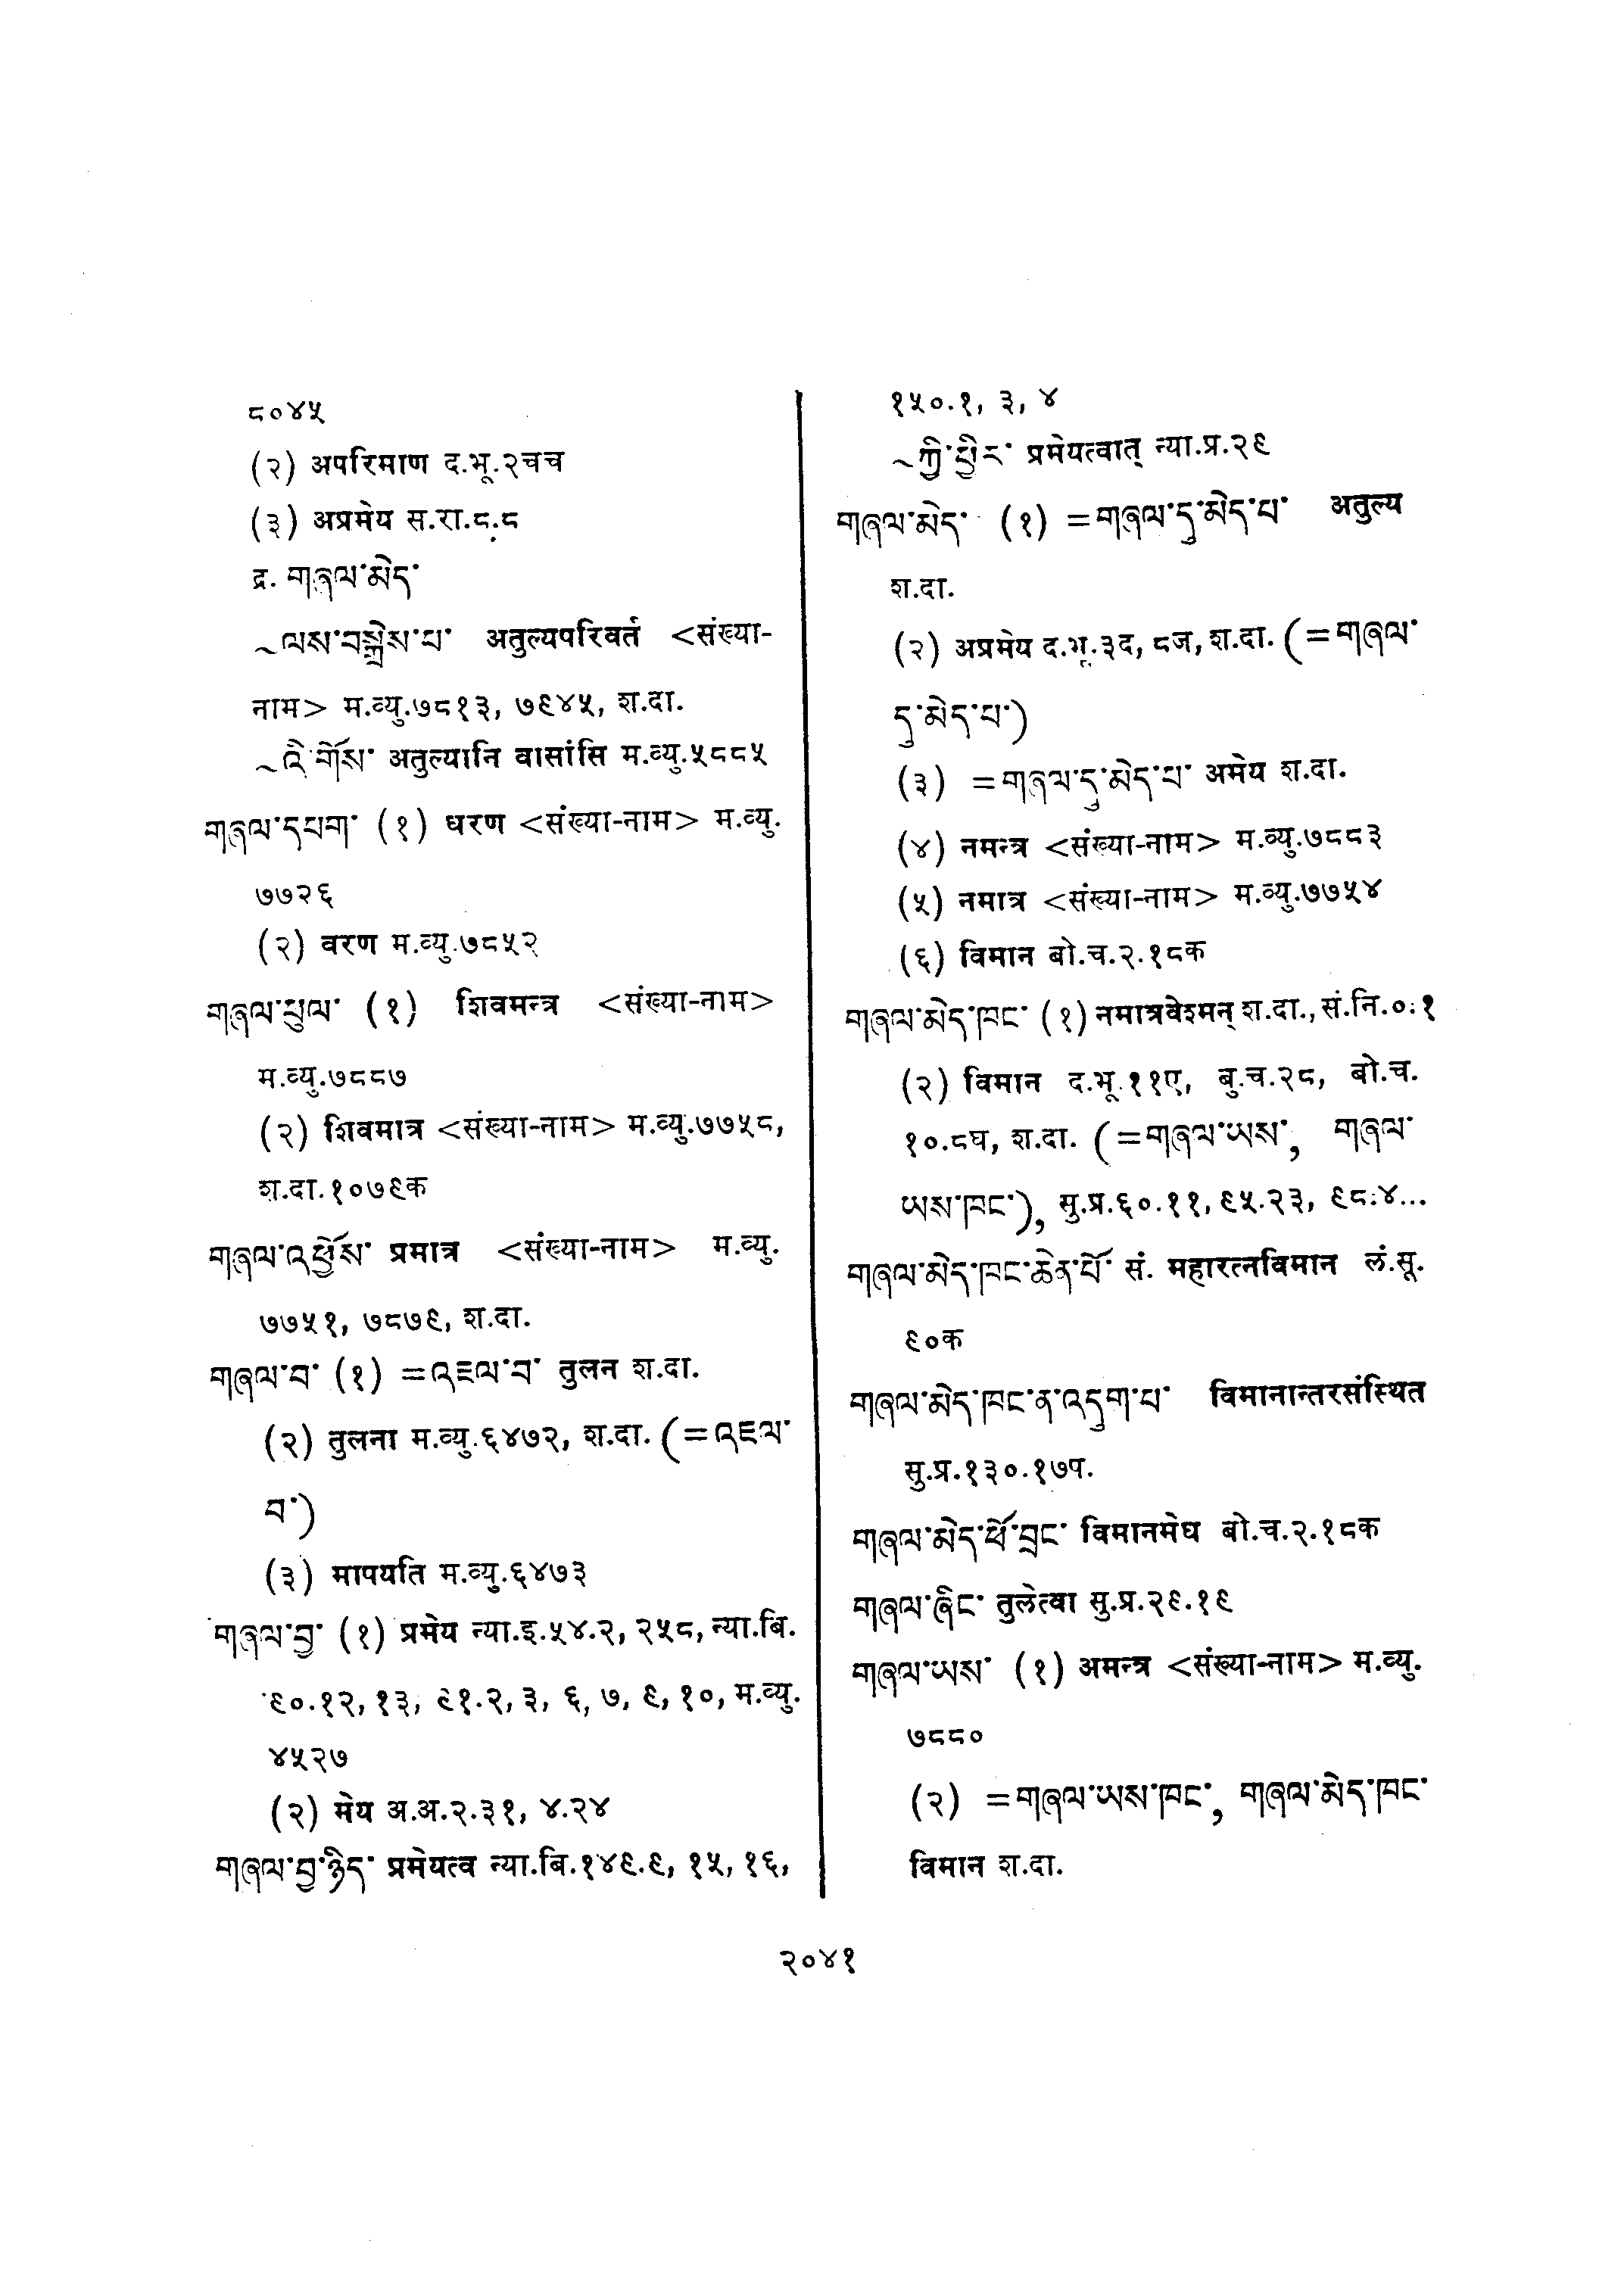 ८०४५
(२) अपरिमाण द.भू.२चच
(३) अप्रमेय स.रा.८.८
द्र. གཞལ་མེད་
~ལས་བསྒྲེས་པ་ अतुल्यपरिवर्त <संख्या-
नाम> म.व्यु.७८१३, ७९४५, श.दा.
~འི་གོས་ अतुल्यानि वासांसि म.व्यु.५८८५
གཞལ་དཔག་ (१) धरण <संख्या-नाम> म.व्यु.
७७२६
(२) वरण म.व्यु.७८५२
གཞལ་ཕུལ་ (१) शिवमन्त्र <संख्या-नाम>
म.व्यु.७८८७
(२) शिवमात्र <संख्या-नाम> म.व्यु.७७५८,
श.दा.१०७९क
གཞལ་འཕྱོས་ प्रमात्र <संख्या-नाम> म.व्यु.
७७५१, ७८७९, श.दा.
གཞལ་བ་ (१) =འཇལ་བ་ तुलन श.दा.
(२) तुलना म.व्यु.६४७२, श.दा. (=འཇལ་
བ་)
(३) मापयति म.व्यु.६४७३
གཞལ་བྱ་ (१) प्रमेय न्या.इ.५४.२, २५८, न्या.बि.
९०.१२, १३, ९१.२, ३, ६, ७, ९, १०, म.व्यु.
४५२७
(२) मेय अ.अ.२.३१, ४.२४
གཞལ་བྱ་ཉིད་ प्रमेयत्व न्या.बि.१४९.९, १५, १६,
१५०.१, ३, ४
~ཀྱི་ཕྱིར་ प्रमेयत्वात् न्या.प्र.२९
གཞལ་མེད་ (१) =གཞལ་དུ་མེད་པ་ अतुल्य
श.दा.
(२) अप्रमेय द.भू.३द, ८ज, श.दा. (=གཞལ་
དུ་མེད་པ་)
(३) =གཞལ་དུ་མེད་པ་ अमेय श.दा.
(४) नमन्त्र <संख्या-नाम> म.व्यु.७८८३
(५) नमात्र <संख्या-नाम> म.व्यु.७७५४
(६) विमान बो.च.२.१८क
གཞལ་མེད་ཁང་ (१) नमात्रवेश्मन् श.दा., सं.नि.०:१
(२) विमान द.भू.११ए, बु.च.२८, बो.च.
१०.८घ, श.दा. (=གཞལ་ཡས་, གཞལ་
ཡས་ཁང་), सु.प्र.६०.११, ९५.२३, ९८:४...
གཞལ་མེད་ཁང་ཆེན་པོ་ सं. महारत्नविमान लं.सू.
९०क
གཞལ་མེད་ཁང་ན་འདུག་པ་ विमानान्तरसंस्थित
सु.प्र.१३०.१७प.
གཞལ་མེད་ཕོ་བྲང་ विमानमेघ बो.च.२.१८क
གཞལ་ཞིང་ तुलेत्वा सु.प्र.२९.१९
གཞལ་ཡས་ (१) अमन्त्र <संख्या-नाम> म.व्यु.
७८८०
(२) =གཞལ་ཡས་ཁང་, གཞལ་མེད་ཁང་
विमान श.दा.
२०४१